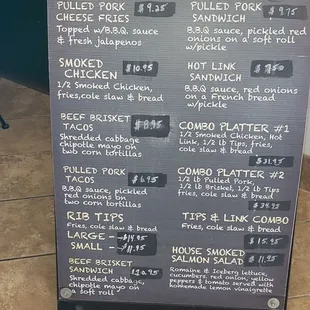 PULLED PORK
CHEESE FRIES
$ 9.25
Topped w/B.B.Q. sauce
& fresh jalapenos
SMOKED
CHICKEN
$10.95
1/2 Smoked Chicken,
fries, cole slaw & bread
BEEF BRISKET
TACOS
$8.95
Shredded cabbage,
chipotle mayo on
two corn tortillas
PULLED PORK
TACOS
$6.95
B.B.Q sauce, pickled
red onions on
two corn tortillas
RIB TIPS
Fries, cole slaw & bread
LARGE - $14.95
SMALL - $11.95
BEEF BRISKET
SANDWICH
$10.95
Shredded cabbage,
chipotle mayo on
a soft roll
PULLED PORK
SANDWICH
$ 9.75
B.B.Q. sauce, pickled red
onions on a soft roll
w/pickle
HOT LINK
SANDWICH
B.B.Q sauce, red onions
on a French bread
w/pickle
COMBO PLATTER #1
1/2 Smoked Chicken, Hot
Link, 1/2 lb Tips, fries,
cole slaw & bread
$31.95
COMBO PLATTER #2
1/2 lb Pulled Pork,
1/2 lb Brisket, 1/2 lb Tips
fries, cole slaw & bread
TIPS & LINK COMBO
Fries, cole slaw & bread
$15.95
HOUSE SMOKED
SALMON SALAD
$ 11.95
Romaine & Iceberg lettuce,
cucumbers, red onion, yellow
peppers & tomato served with
homemade lemon vinaigrette